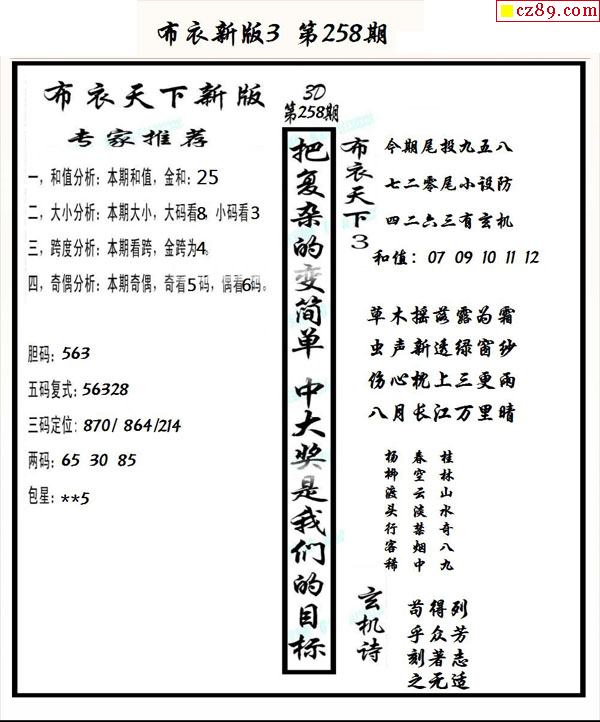 cz89.com
布衣新版3 第258期
布衣天下新版
专家推荐
一，和值分析：本期和值，金和：25
二，大小分析：本期大小，大码看8，小码看3
三，跨度分析：本期看跨，金跨为4。
四，奇偶分析：本期奇偶，奇看5码，偶看6码。
胆码：563
五码复式：56328
三码定位：870/ 864/214
两码：65 30 85
包星：**5
3D
第258期
把复杂的变简单 中大奖是我们的目标
布衣天下3
今期尾投九五八
七二零尾小设防
四二六三有玄机
和值：07 09 10 11 12
草木摇落露为霜
虫声新透绿窗纱
伤心枕上三更雨
八月长江万里晴
桂林山水奇八九
春空云淡禁烟中
杨柳渡头行客稀
玄机诗
列芳志适
得众著无
苟乎刻之